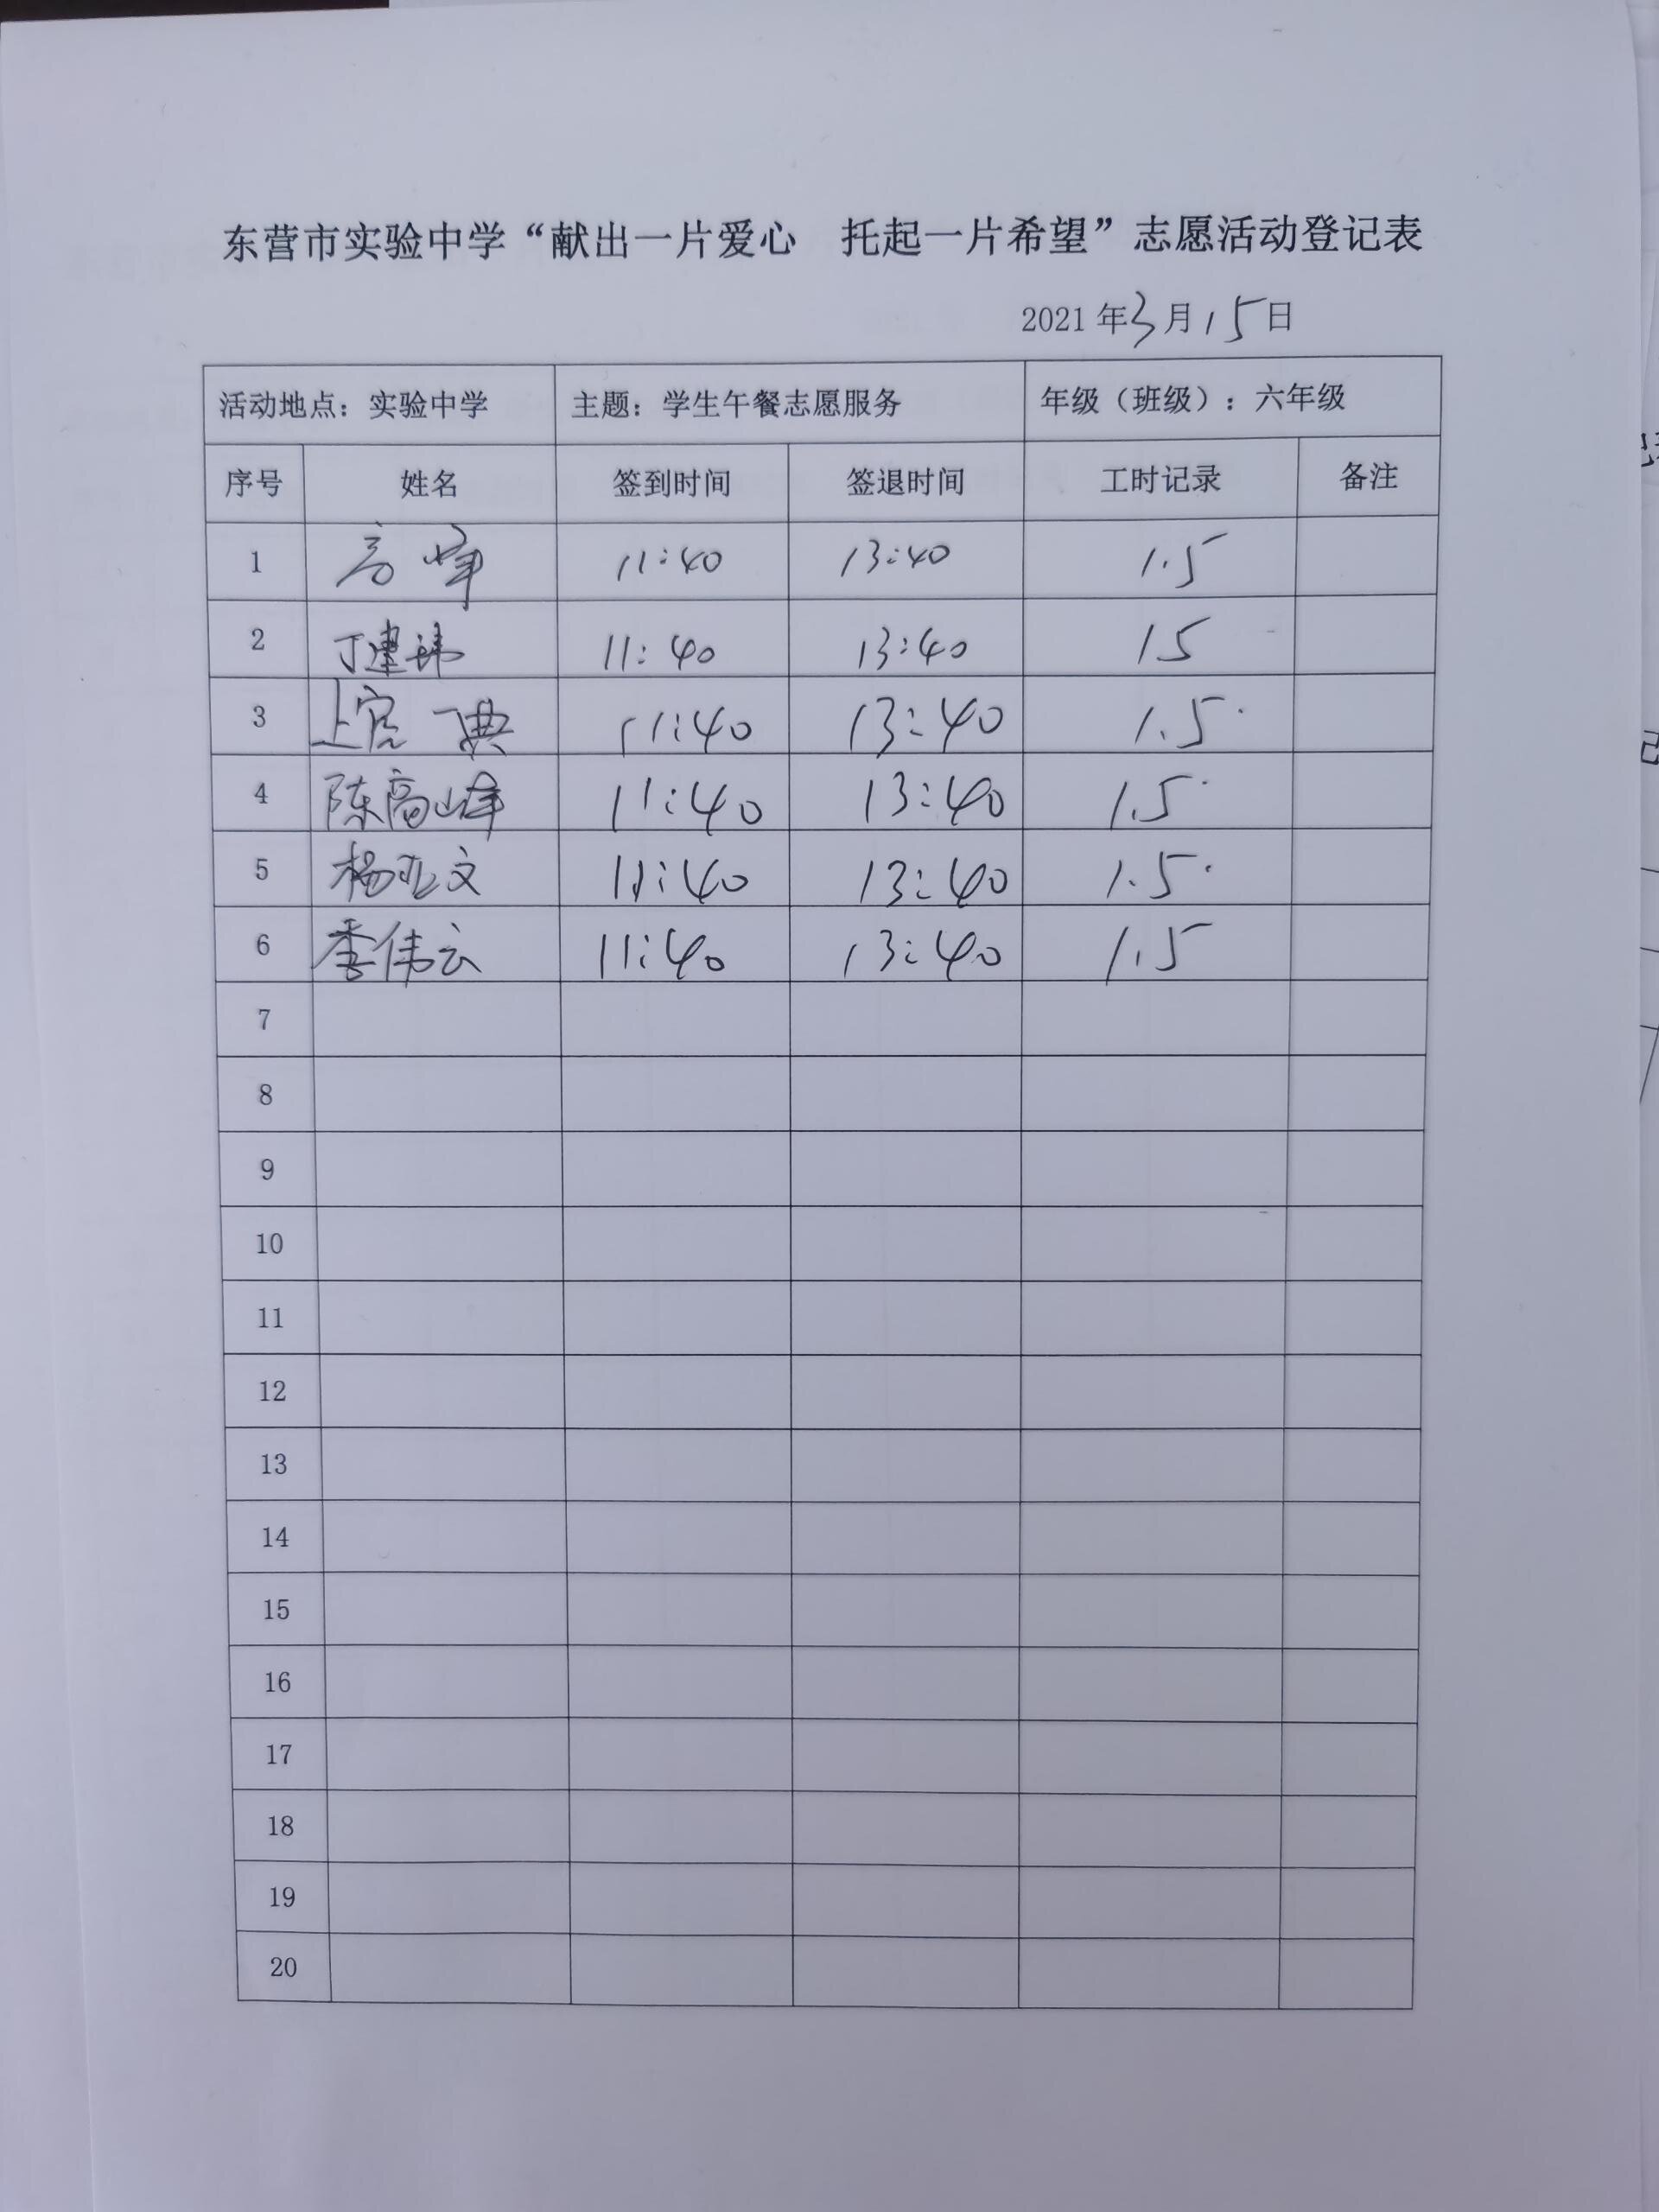 东营市实验中学“献出一片爱心　托起一片希望”志愿活动登记表
2021年3月15日
活动地点：实验中学 主题：学生午餐志愿服务 年级（班级）：六年级
序号 姓名 签到时间 签退时间 工时记录 备注
1 高峰 11:40 13:40 1.5
2 丁建玮 11:40 13:40 15
3 上官一典 11:40 13:40 1.5
4 陈高峰 11:40 13:40 1.5
5 杨亚文 11:40 13:40 1.5
6 季伟云 11:40 13:40 1.5
7
8
9
10
11
12
13
14
15
16
17
18
19
20